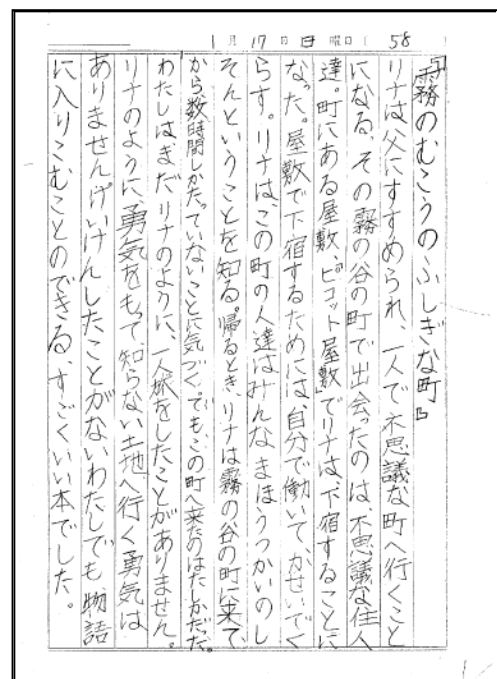 1月17日日曜日（58
『霧のむこうのふしぎな町』
リナは父にすすめられ、一人で不思議な町へ行くこと
になる。その霧の谷の町で出会ったのは、不思議な住人
達。町にある屋敷、『ピコット屋敷』でリナは、下宿することに
なった。屋敷で下宿するためには、自分で働いて、かせいでく
らす。リナは、この町の人達はみんなまほうつかいのし
そんということを知る。帰るとき、リナは霧の谷の町に来て、
から数時間しかたっていないことに気づく。でも、この町へ来たのはたしかだった。
わたしはまだリナのように、一人旅をしたことがありません。
リナのように、勇気をもって、知らない土地へ行く勇気は
ありません。けいけんしたことがないわたしでも、物語
に入りこむことのできる、すごくいい本でした。